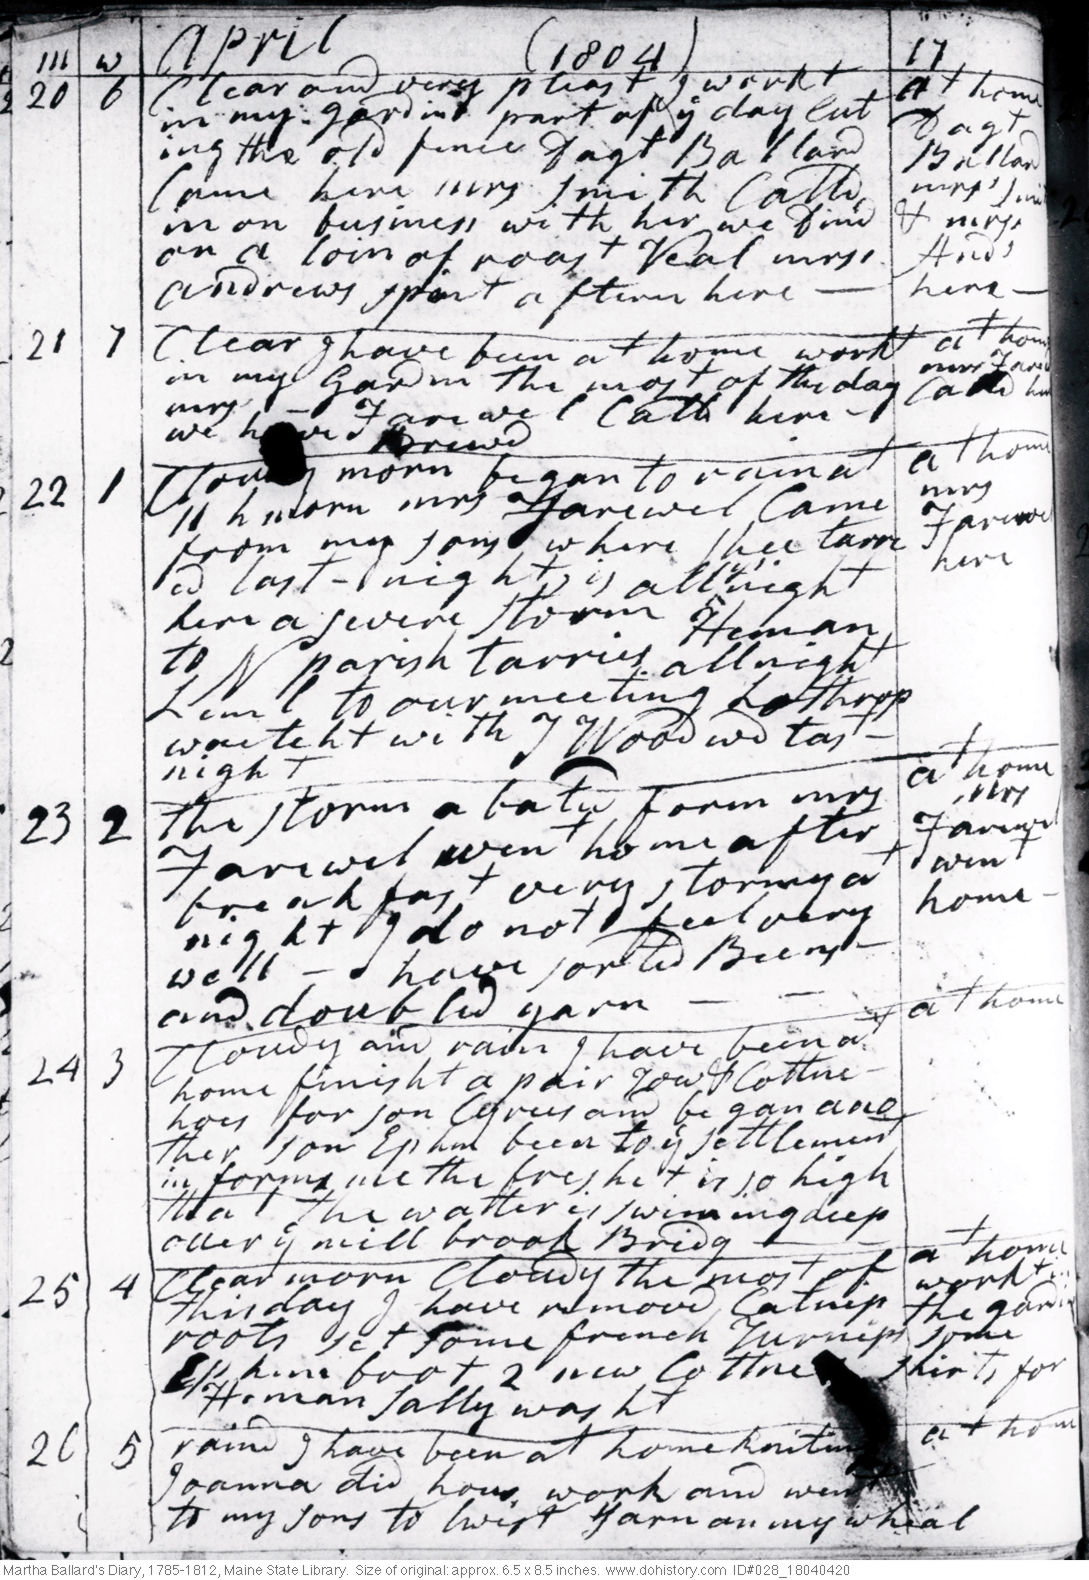 m w April (1804) 17
20 6 Clear and very pleast I workt at home
in my gardin part of ÿ day Cut Dagt
ing the old fence Dagt Ballard Ballard
Came here mrs Smith Calld mrs Smi
in on business with her we Dind & mrs
on a loin of roast Veal mrs And
andrews spint aftern here — here —
21 7 Clear I have been at home workt at home
in my Gardin the most of the day mrs Farewel
mrs — Farewel Calld here — Calld here
we have Brewd
22 1 Cloudy morn began to rain at at home
11 h morn mrs Farewel Came mrs
from my sons where shee tarri Farewel
ed last - night is all night here
here a severe storm Heman
to N parish tarries all night
Leml to our meeting Lothrop
wactcht with J Woodwd last -
night
23 2 the storm abates forin mrs at home
Farewel went home after mrs
breakfast very stormy at Farewel
night I do not feel very went
well — have sorted Beens — home —
and doubled yarn — —
24 3 Cloudy and rain I have been at at home
home finisht a pair Cottne -
hoes for son Cyrus and began ano
ther son Ephm been to ÿ settlement
informs me the freshet is so high
that the watter is swimming deep
over ÿ mill brook Bridg —
25 4 Clear morn Cloudy the most of at home
this day I have removd Catnip workt in
roots set some french Turnips the gardin some
Ephm brot 2 new Cottne shirts for
Heman Sally washt
26 5 raind I have been at home kniting at home
Joanna did hous work and went
to my sons to twist yarn on my wheal
Martha Ballard's Diary, 1785-1812, Maine State Library. Size of original: approx. 6.5 x 8.5 inches. www.dohistory.com ID#028_18040420